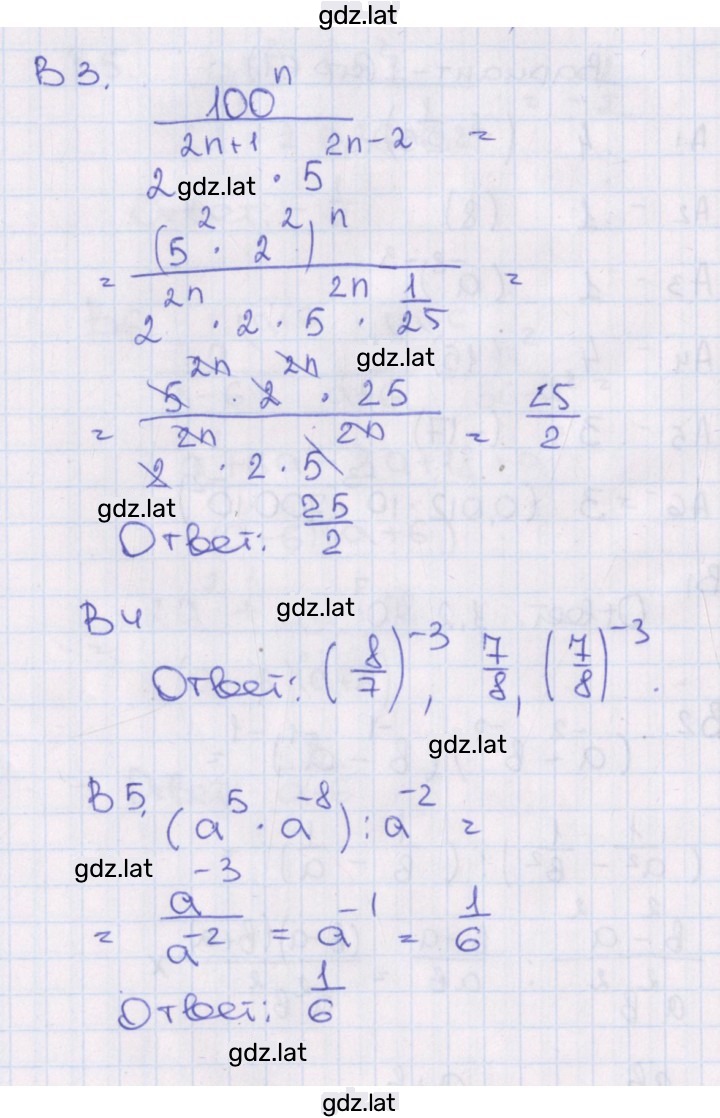 gdz.lat
В 3.
100^n / (2^(2n+1) · 5^(2n-2)) =
gdz.lat
= (5^2 · 2^2)^n / (2^(2n) · 2 · 5^(2n) · 1/25) =
gdz.lat
= 5^(2n) · 2^(2n) · 25 / (2^(2n) · 2 · 5^(2n)) = 25/2
gdz.lat
Ответ: 25/2
В 4
gdz.lat
Ответ: (8/7)^(-3), 7/8, (7/8)^(-3).
gdz.lat
В 5. (a^5 · a^(-8)) : a^(-2) =
gdz.lat
= a^(-3) / a^(-2) = a^(-1) = 1/6
Ответ: 1/6
gdz.lat
gdz.lat